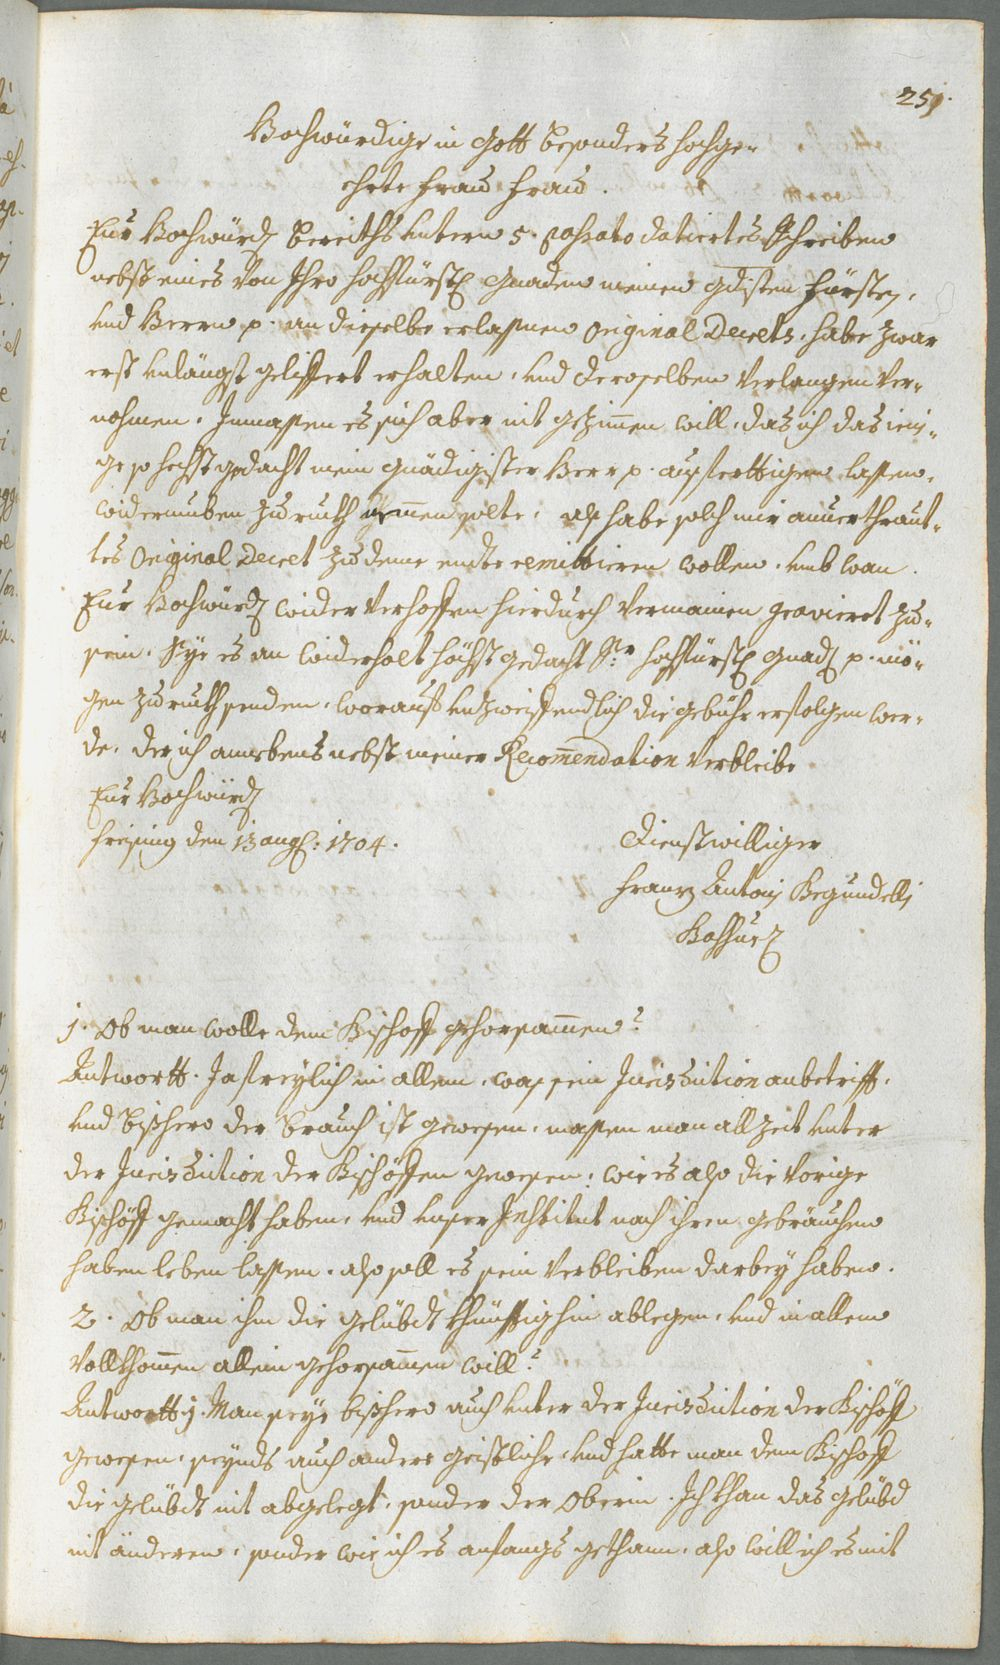 251.
Hochwürdige in Gott besonders hochge-
ehrte Frau Frau.
Eur Hochwürd. bereiths untern 5. passato datiertes Schreiben
nebst eines von Ihro hochfürstl. Gnaden meines gdisten Fürsten,
und Herrn p. an dieselbe erlassnen Original Decrets, habe zwar
erst unlängst gelifert erhalten, und deroselben verlangen ver-
nohmen. Inmassen es sich aber nit gezimen will, das ich das ieni-
ge so hechst gedacht mein gnädigister Herr p. ausferttigen lassen,
widerumben zuruckh nemen solte, als habe solch mir anverthraut-
tes Original Decret zu deme endte remittieren wollen, umb wan
Eur Hochwürd. wider verhoffen hierdurch vermainen gravieret zu
sein, Sye es an widerholt höchst gedacht Sr. hochfürstl. Gnad. p. mö-
gen zuruckhsenden, worauf unzweifendlich die gebühr erfolgen wer-
de, der ich annebens nebst meiner Recommendation verbleibe
Eur Hochwürd.
Freising den 13 aug: 1704.
Dienstwilliger
Franz Antonj Begundellj
Bassus
1. Ob man wolle dem Bischoff gehorsammen?
Antwortt. Ja freylich in allem, was sein Jurisdiction anbetrifft,
und bißhero der brauch ist gewesen, massen man allzeit unter
der Jurisdiction der Bischöffen gewesen, wie es also die vorige
Bischöff gemacht haben, und unser Institut nach ihren gebräuchen
haben leben lassen, also soll es sein verbleiben darbey haben.
2. Ob man ihm die gelübdt khünfftighin ablegen, und in allem
vollkhommen allein gehorsammen will?
Antwortt. 1. Man seye bißhero auch unter der Jurisdiction der Bischöff
gewesen, seynds auch andere geistliche, und hatte man dem Bischoff
die gelübdt nit abgelegt, sonder der Oberin. Ich khan das gelübd
nit änderen, sonder wie ich es anfangs gethann, also will ich es mit